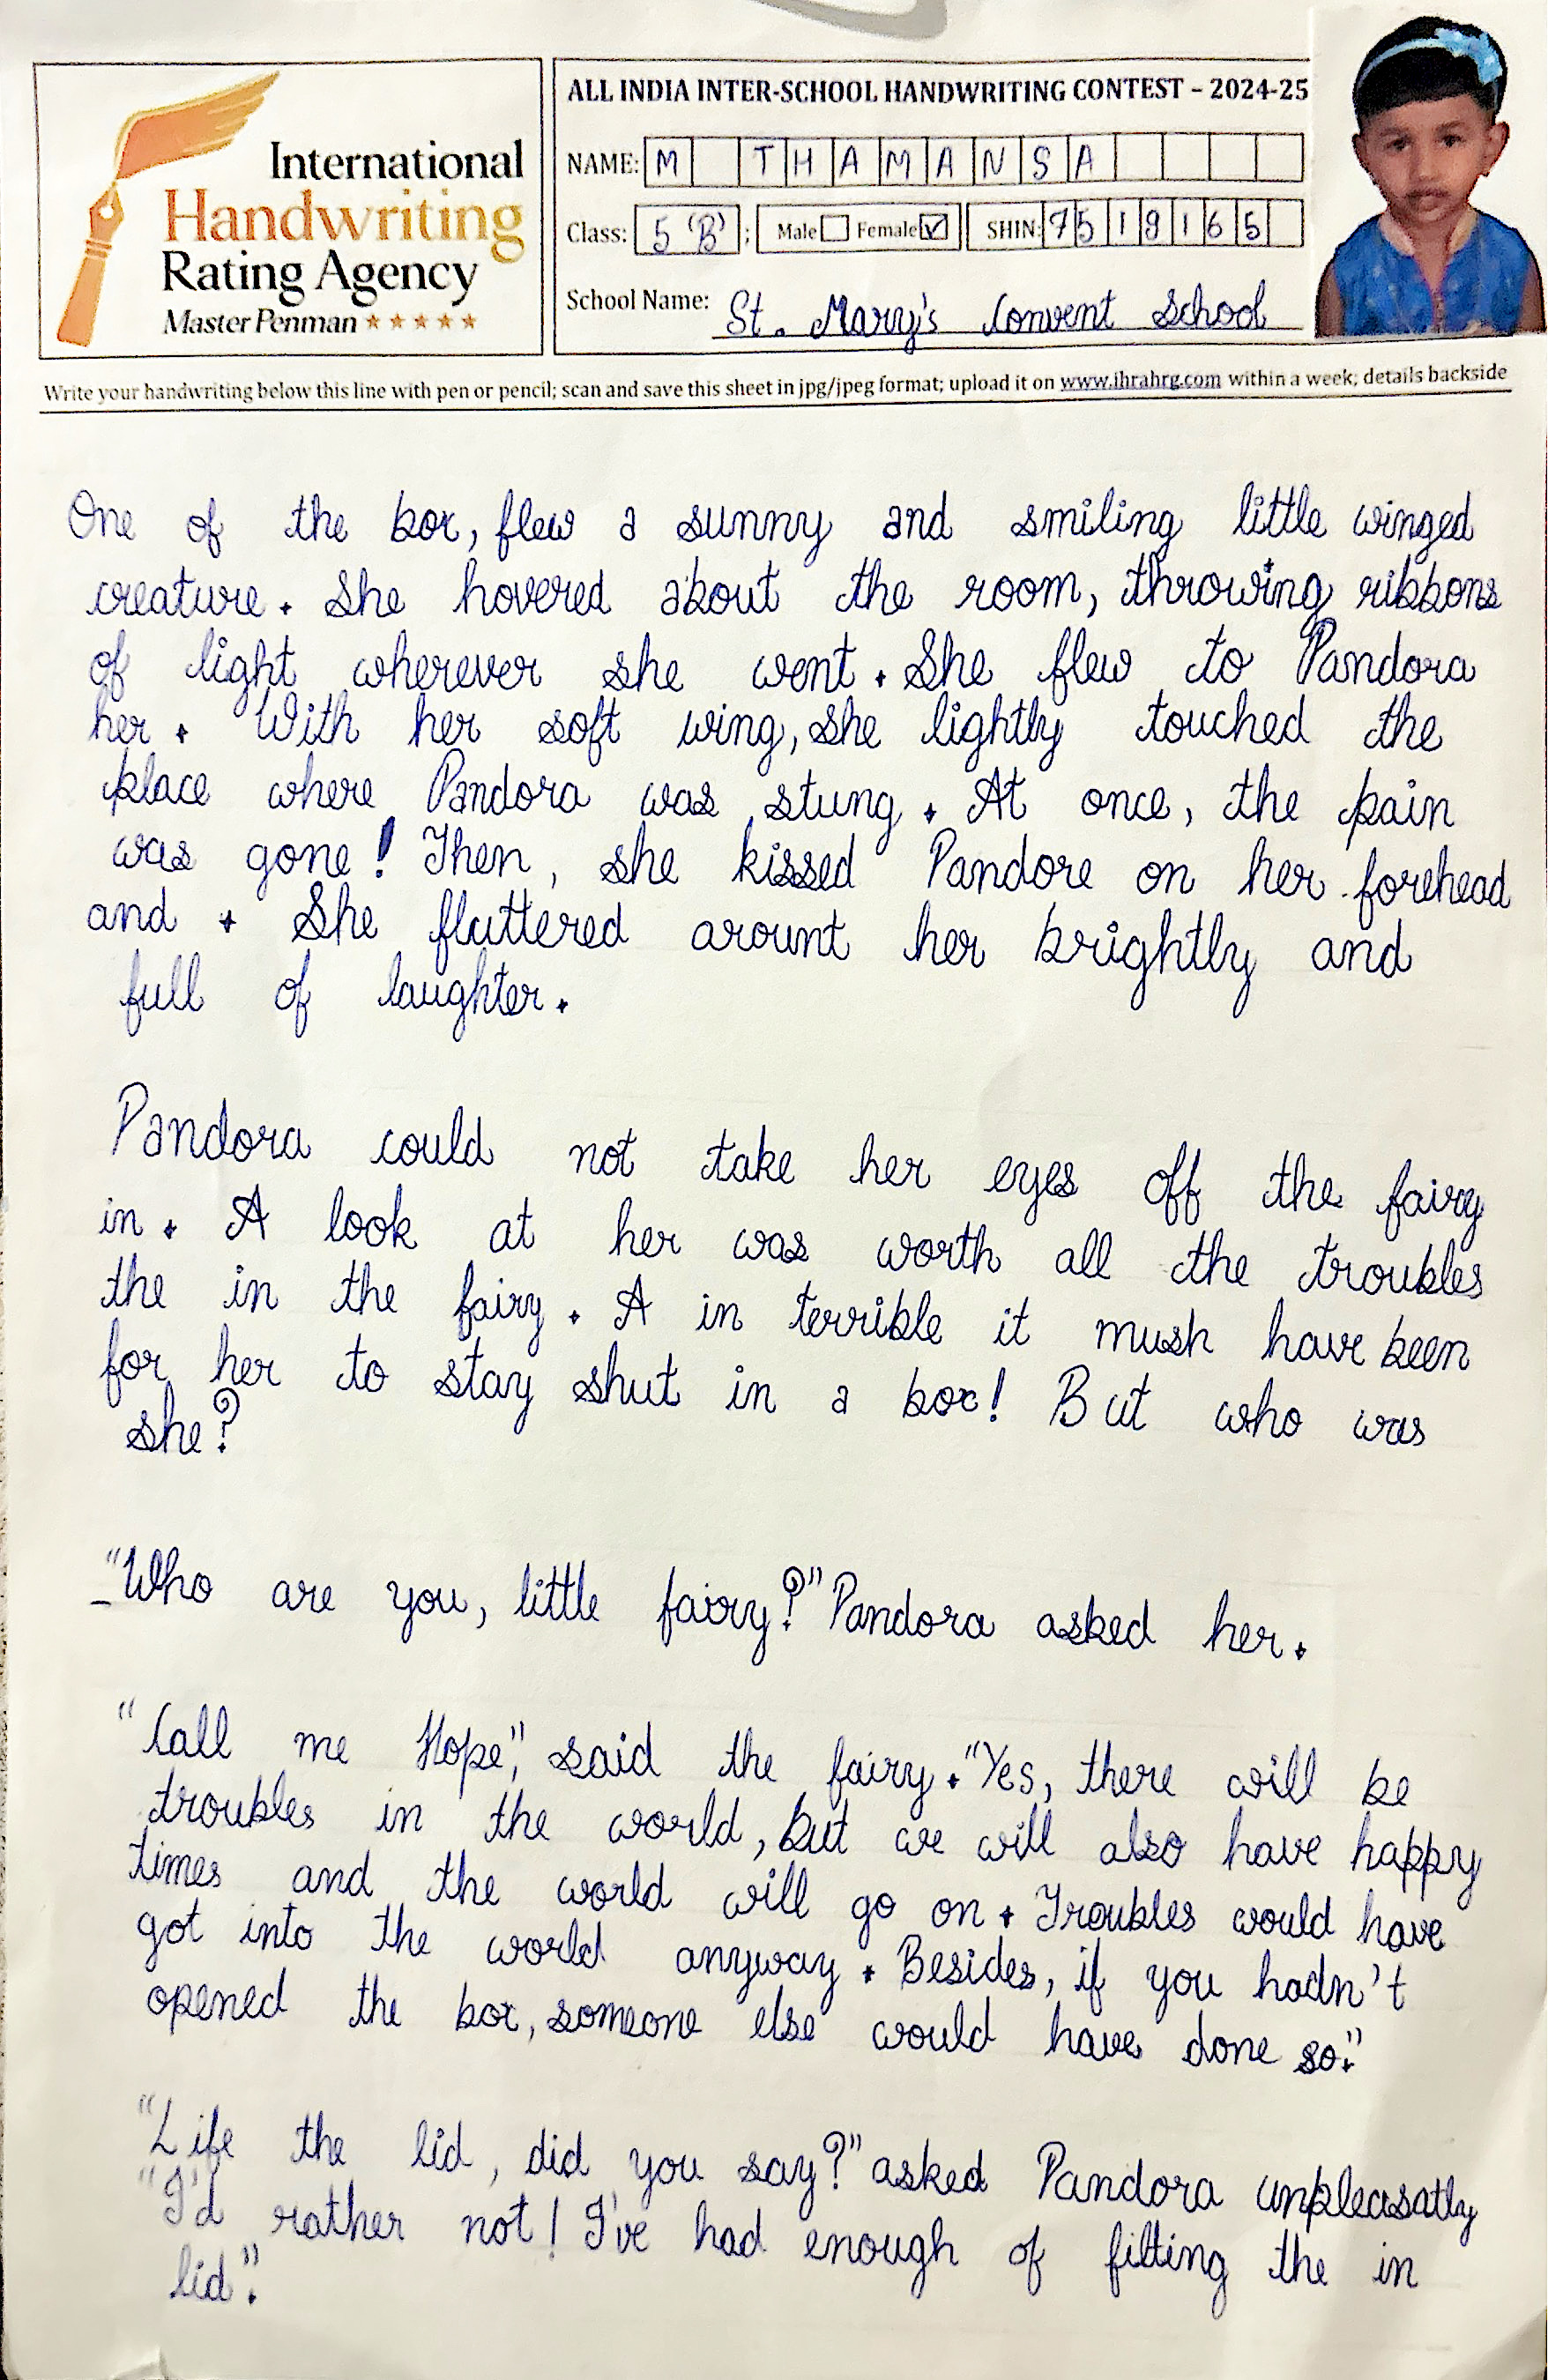 International
Handwriting
Rating Agency
Master Penman
ALL INDIA INTER-SCHOOL HANDWRITING CONTEST – 2024-25
NAME: M THAMANSA
Class: 5 'B' ; Male Female ✓ SHIN: 7519165
School Name: St. Mary's Convent School
Write your handwriting below this line with pen or pencil; scan and save this sheet in jpg/jpeg format; upload it on www.ihrahrg.com within a week; details backside
One of the box, flew a sunny and smiling little winged
creature. She hovered about the room, throwing ribbons
of light wherever she went. She flew to Pandora
her. With her soft wing, she lightly touched the
place where Pandora was stung. At once, the pain
was gone! Then, she kissed Pandore on her forehead
and. She fluttered arount her brightly and
full of laughter.
Pandora could not take her eyes off the fairy
in. A look at her was worth all the troubles
the in the fairy. A in terrible it mush have been
for her to stay shut in a box! But who was
she?
"Who are you, little fairy?" Pandora asked her.
"Call me Hope", said the fairy. "Yes, there will be
troubles in the world, but we will also have happy
times and the world will go on. Troubles would have
got into the world anyway. Besides, if you hadn't
opened the box, someone else would have done so."
"Life the lid, did you say?" asked Pandora unpleasatly
"I'd rather not! I've had enough of filting the in
lid".